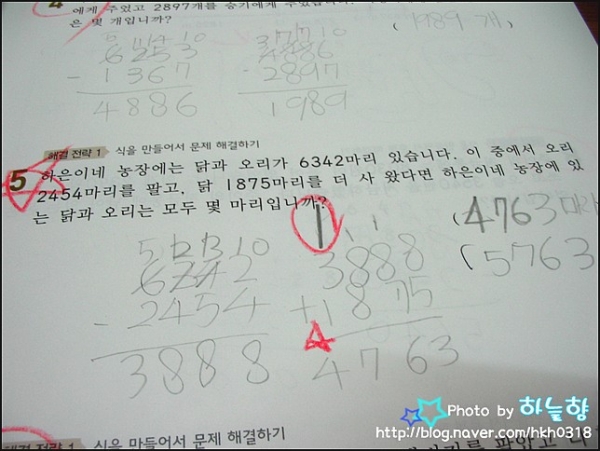 에게 주었고 2897개를 승기에게 주었습니다.
은 몇 개입니까?
(1989 개)
5 11 14 10
6253
- 1367
4886
3 17 17 10
4886
- 2897
1989
해결 전략 1 식을 만들어서 문제 해결하기
5 하은이네 농장에는 닭과 오리가 6342마리 있습니다. 이 중에서 오리
2454마리를 팔고, 닭 1875마리를 더 사 왔다면 하은이네 농장에 있
는 닭과 오리는 모두 몇 마리입니까?
(4763 마리)
(5763
5 12 13 10
6342
- 2454
3888
1 1 1
3888
+ 1875
4763
해결 전략 1 식을 만들어서 문제 해결하기
Photo by 하늘향
http://blog.naver.com/hkh0318